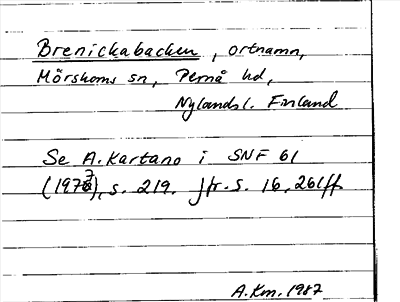 Brenickabacken, ortnamn,
Mörskoms sn, Pernå hd,
Nylandsl. Finland
Se A. Kartano i SNF 61
(1977), s. 219. Jfr. s. 16, 261ff
A.Km. 1987